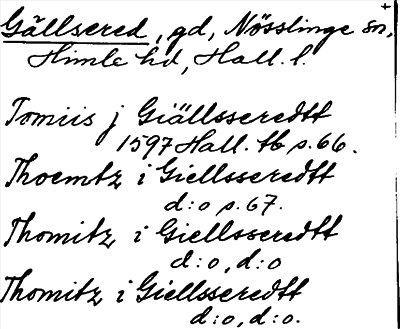 Gällsered, gd, Nösslinge sn,
Himle hd, Hall. l.
Tomiis j Giällsseredtt
1597 Hall. tb s. 66.
Thoemtz i Giellsseredtt
d:o s. 67.
Thomitz i Giellsseredtt
d:o, d:o
Thomitz i Giellsseredtt
d:o, d:o.